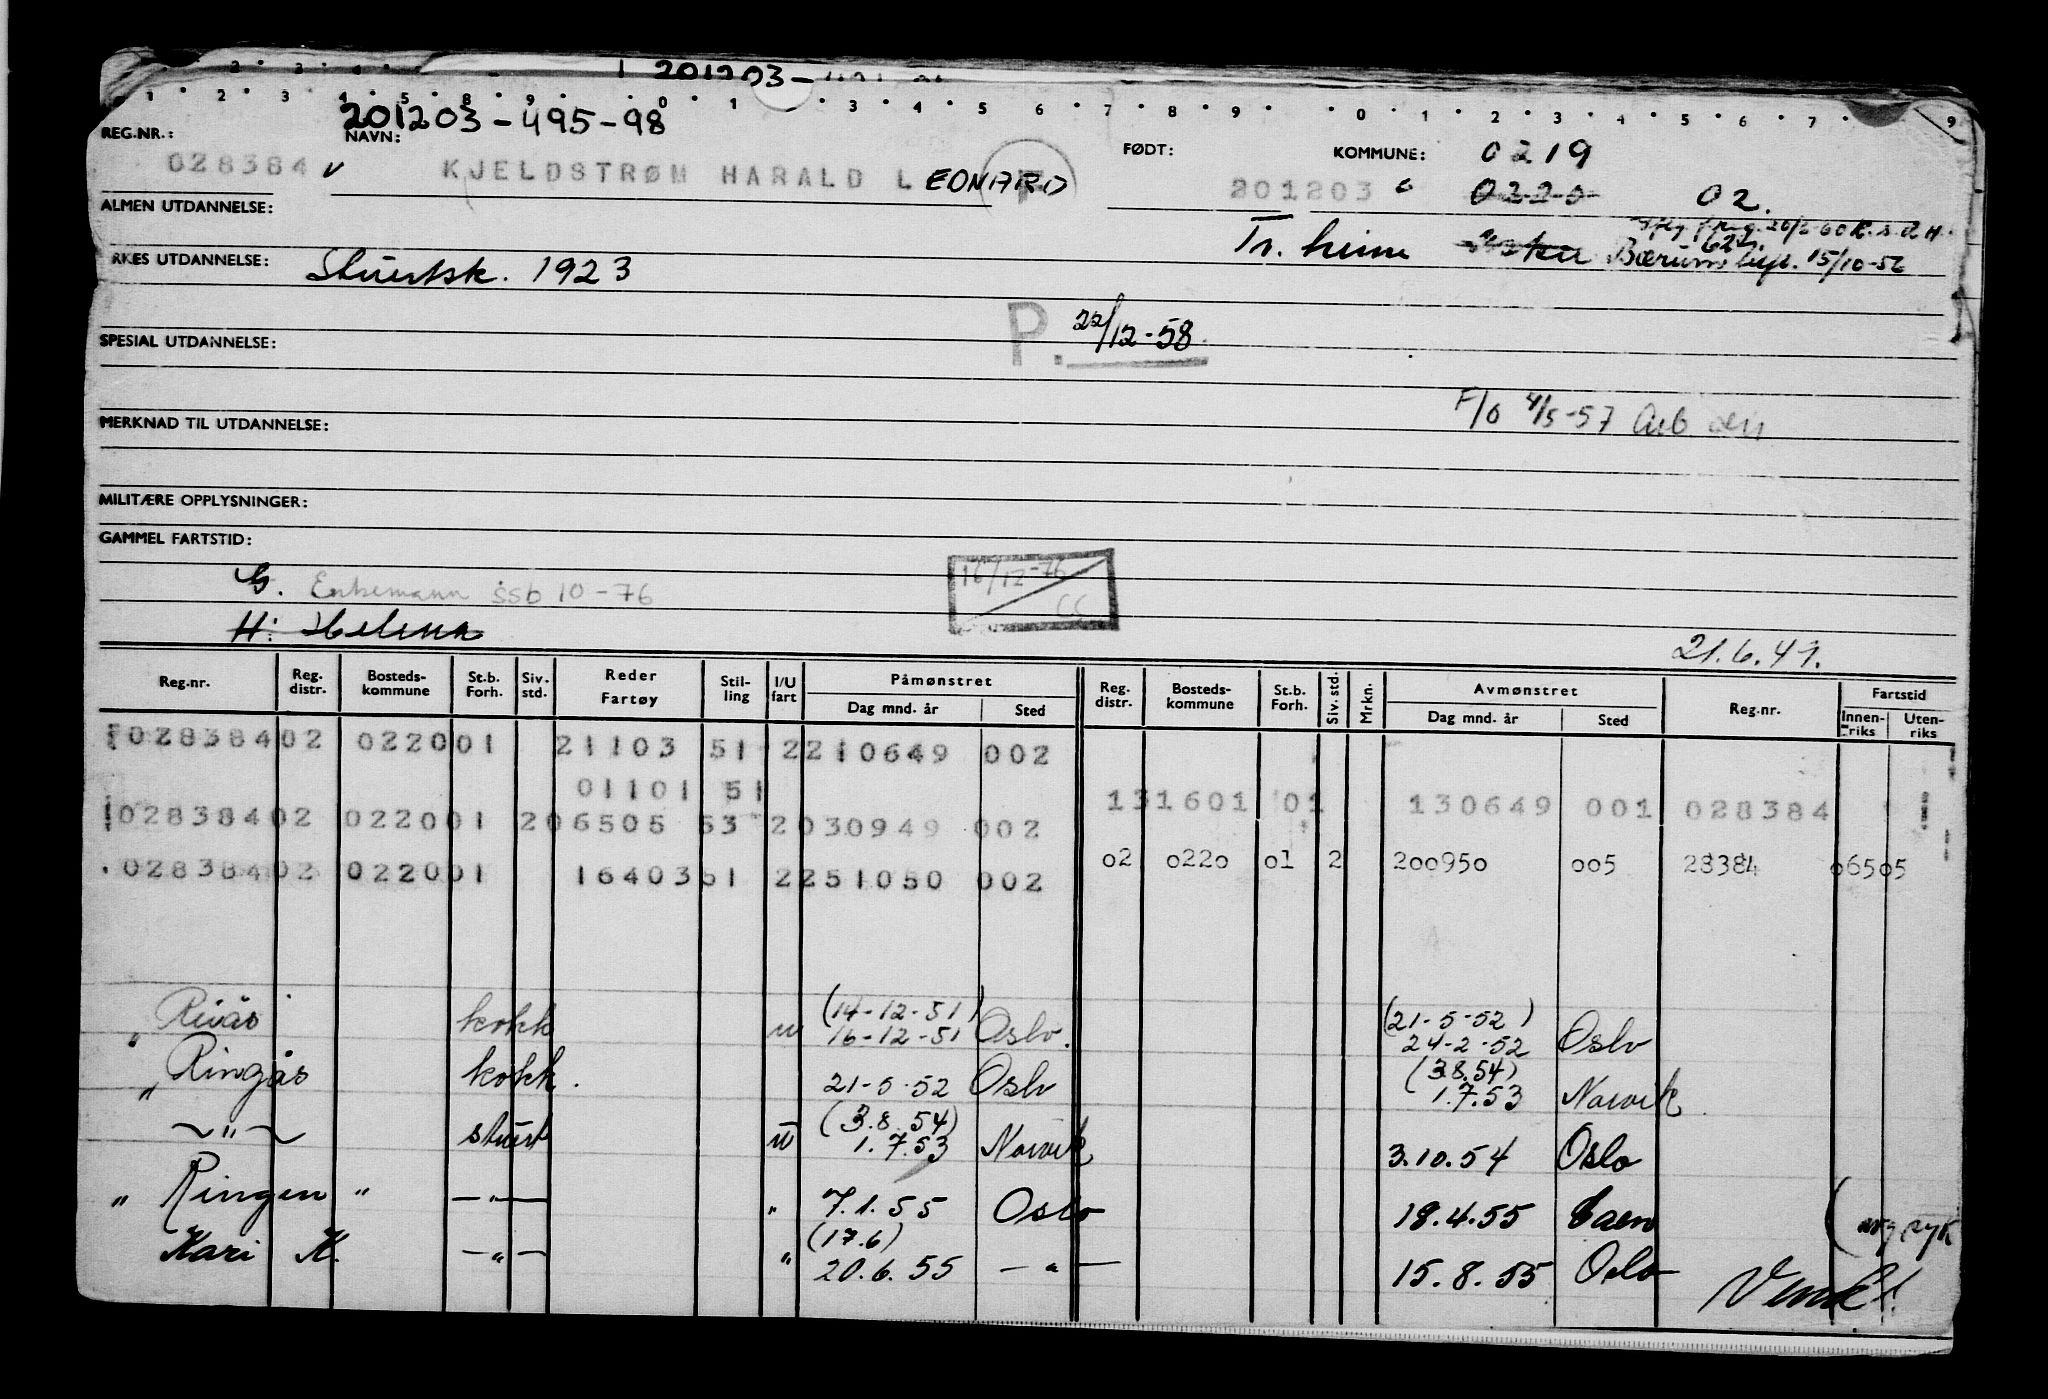 201203-
1 2 3 4 5 8 9 0 1 3 4 5 6 7 8 9 0 1 2 3 4 5 6 7 9
201203-495-98
REG.NR.: NAVN: FØDT: KOMMUNE: 0219
028384 v KJELDSTRØM HARALD LEONARD F 201203 0220 02.
ALMEN UTDANNELSE:
Tr. heim Bærum 15/10-56
RKES UTDANNELSE: Stuertsk. 1923
P. 22/12-58
SPESIAL UTDANNELSE:
F/o 4/5-57
MERKNAD TIL UTDANNELSE:
MILITÆRE OPPLYSNINGER:
GAMMEL FARTSTID:
G. Enkemann ssb 10-76
16/12-76 CC
H: Helena
21.6.49.
Reg.nr. Reg. distr. Bosteds-kommune St.b. Forh. Siv. std. Reder Fartøy Stil-ling I/U fart Påmønstret Dag mnd. år Sted Reg. distr. Bosteds-kommune St.b. Forh. Siv. std. Mrkn. Avmønstret Dag mnd. år Sted Reg.nr. Fartstid Innen-riks Uten-riks
028384 02 0220 01 21103 51 2 210649 002
01101 51 131601 01 130649 001 028384
028384 02 0220 01 2 06505 53 2 030949 002
02 0220 01 2 200950 005 28384 06505
028384 02 0220 01 16403 51 2 251050 002
Rivås kokk u (14-12-51) 16-12-51 Oslo. (21-5-52) 24-2-52 Oslo
" Ringås kokk. 21-5-52 Oslo (3.8.54) 1.7.53 Narvik
" ~"~ stuert u (3.8.54) 1.7.53 Narvik 3.10.54 Oslo
" Ringen " —"— " 7.1.55 Oslo 18.4.55 Caen
Kari K. —"— " (17.6) 20.6.55 —"— 15.8.55 Oslo